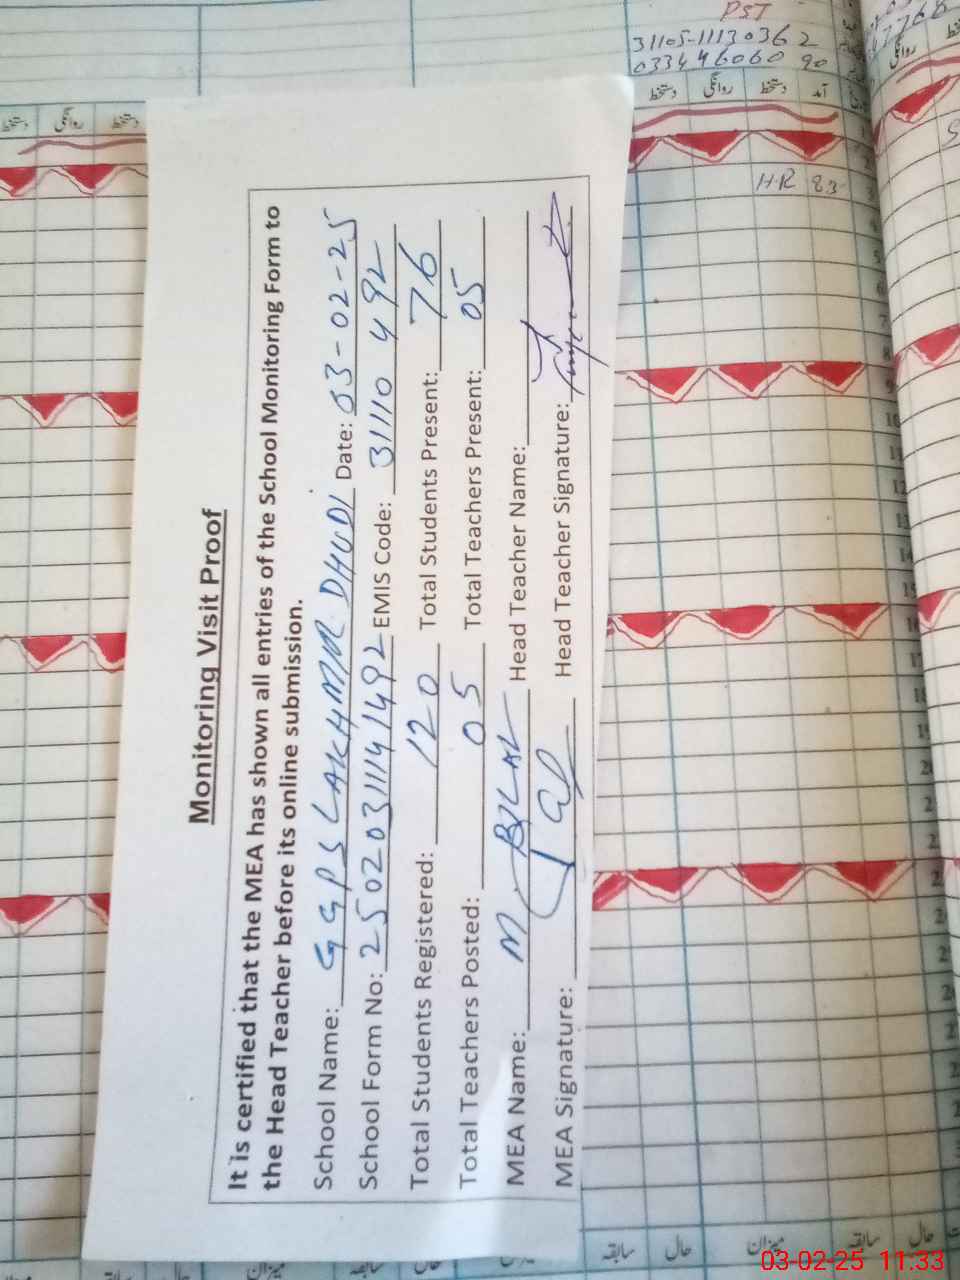 Monitoring Visit Proof
It is certified that the MEA has shown all entries of the School Monitoring Form to
the Head Teacher before its online submission.
School Name: GGPS LAKHMIR DHUDI Date: 03-02-25
School Form No: 25020311141492 EMIS Code: 31110492
Total Students Registered: 120 Total Students Present: 76
Total Teachers Posted: 05 Total Teachers Present: 05
MEA Name: M. BILAL Head Teacher Name:
MEA Signature: Head Teacher Signature:
PST
31105-1113036 2
033446060 90
دستخط روانگی دستخط آمد
دستخط روانگی دستخط
روانگی
H-R 83
10
11
12
13
14
15
16
17
18
19
سابقہ حال میزان سابقہ حال
میزان سابقہ حال
03-02-25 11:33